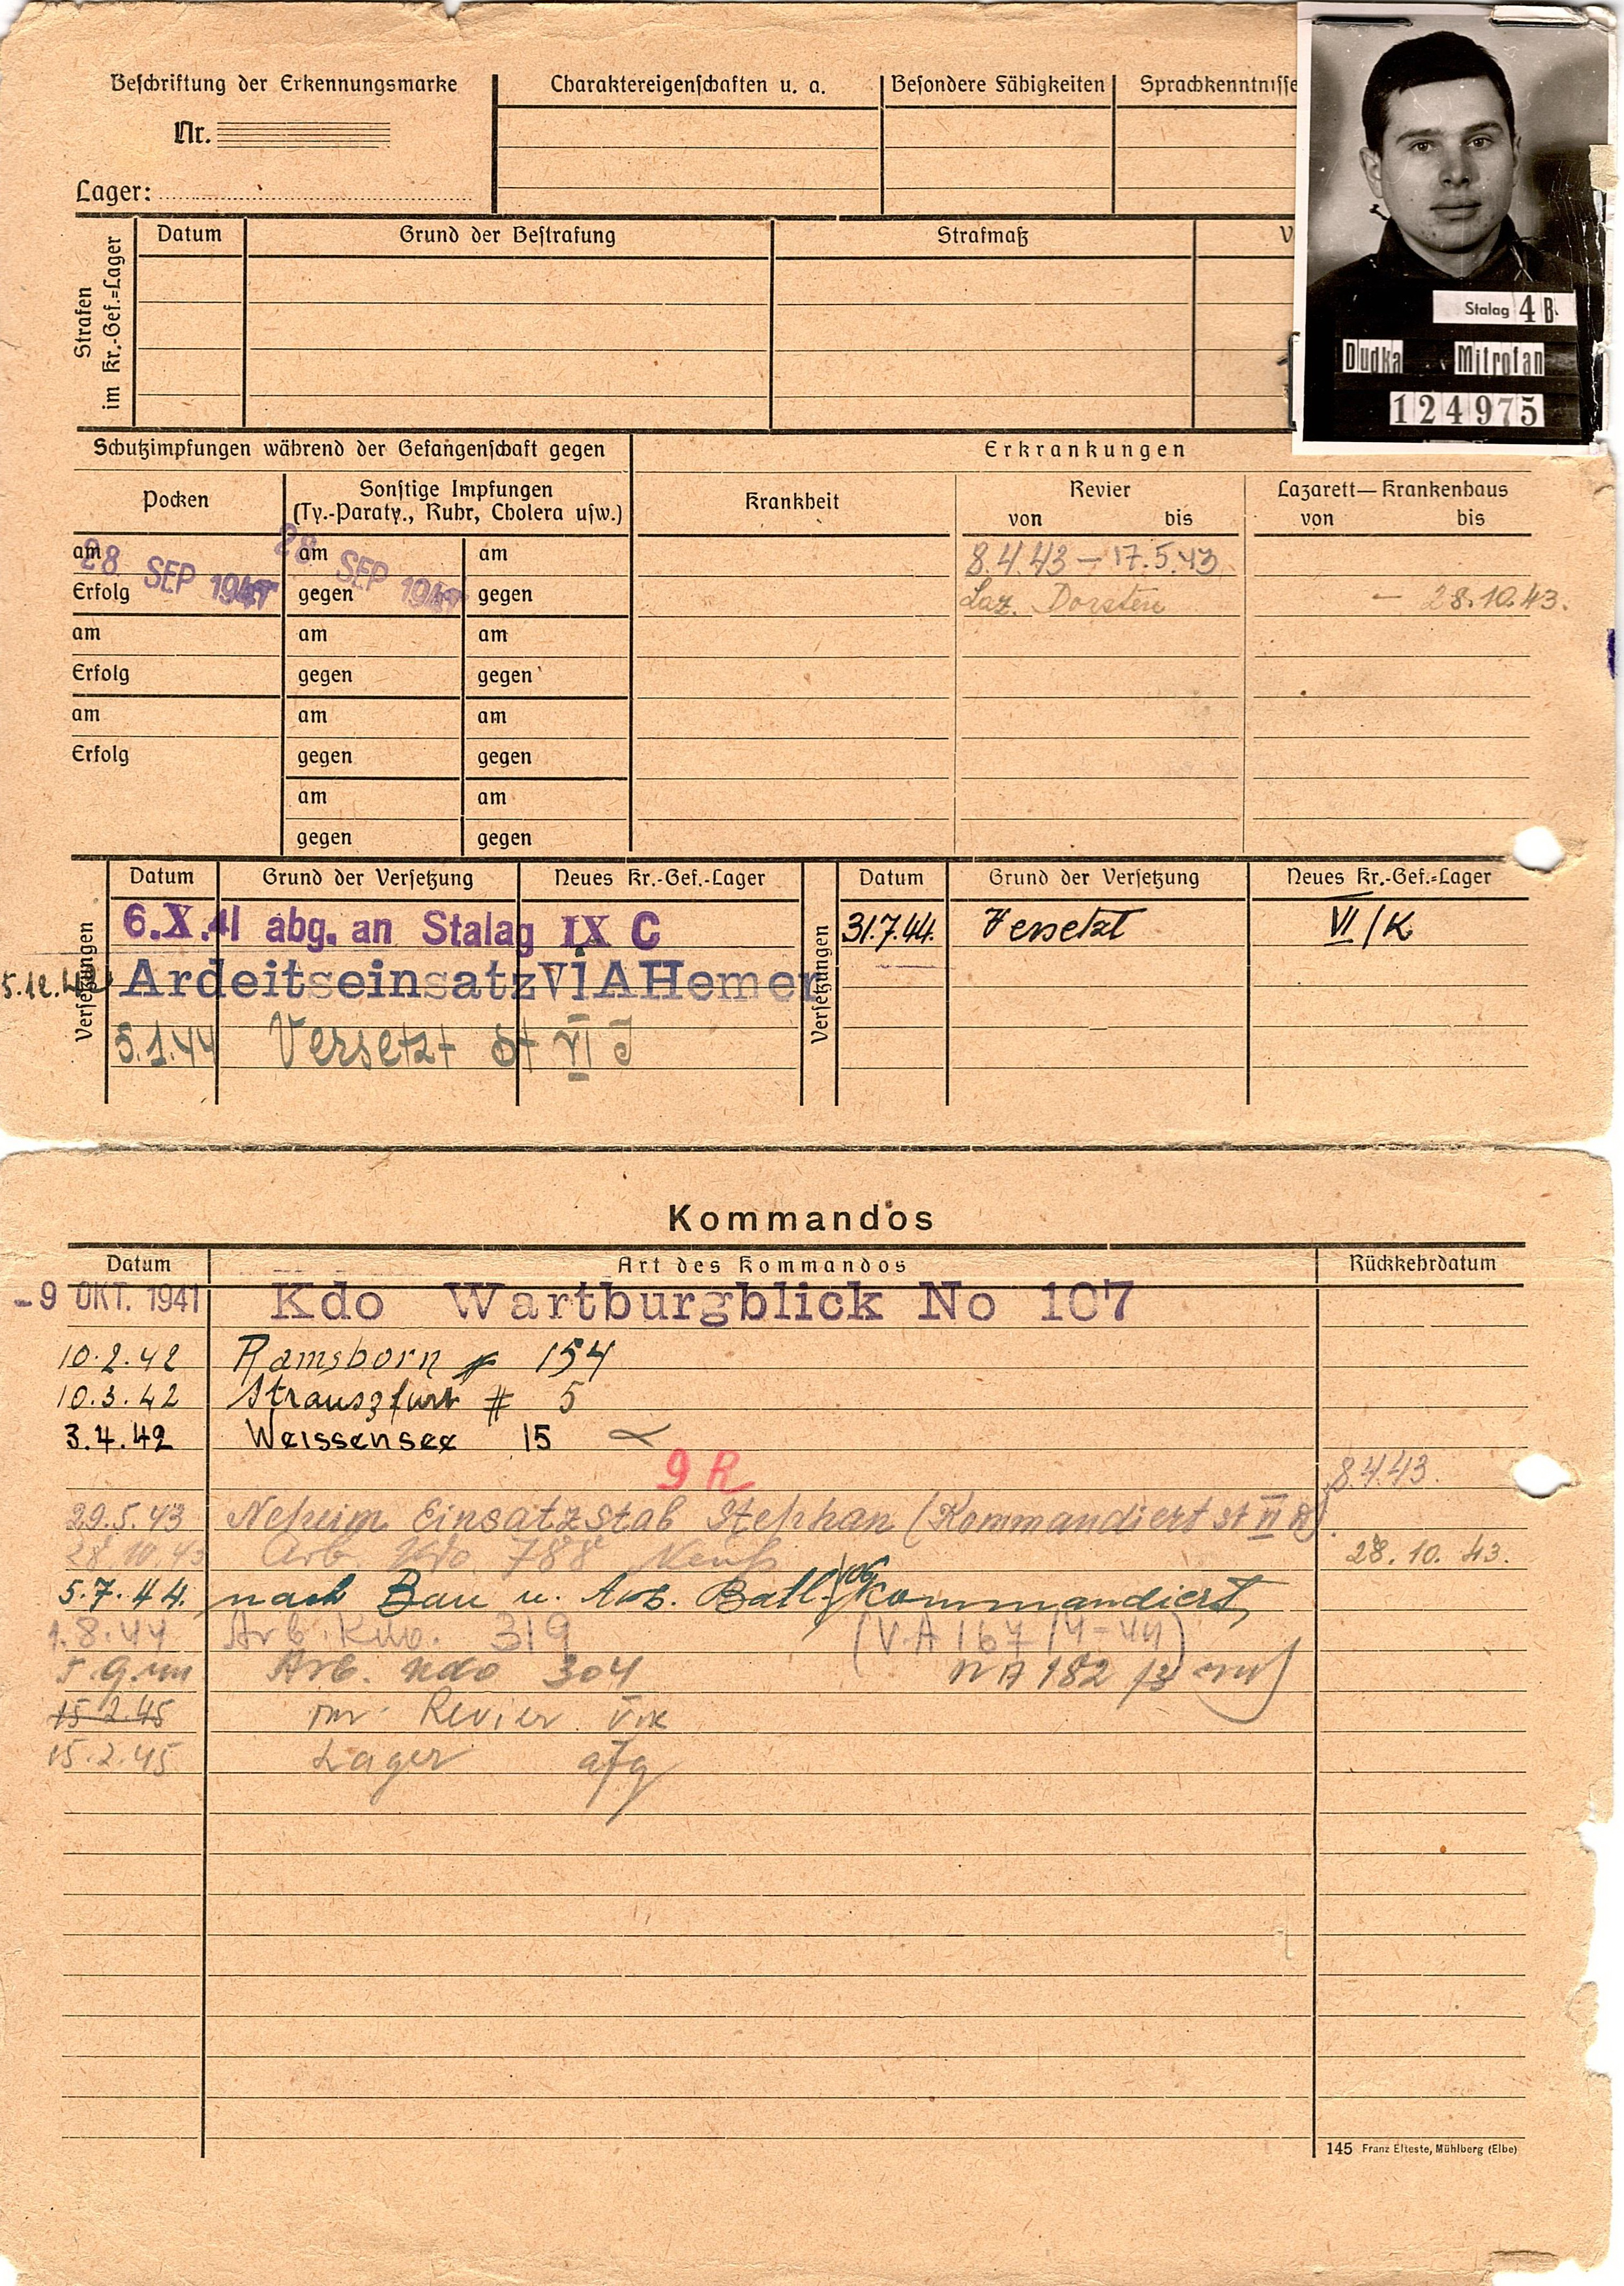 Beschriftung der Erkennungsmarke
Nr.
Lager:
Charaktereigenschaften u. a.
Besondere Fähigkeiten
Sprachkenntnisse
Stalag 4 B.
Dudka Mitrofan
124975
Strafen im Kr.-Gef.=Lager
Datum Grund der Bestrafung Strafmaß V
Schutzimpfungen während der Gefangenschaft gegen
Erkrankungen
Pocken
Sonstige Impfungen
(Ty.-Paraty., Ruhr, Cholera usw.)
Krankheit
Revier
von bis
Lazarett—Krankenhaus
von bis
am am am
28 SEP 1941 28 SEP 1941
8.4.43 – 17.5.43
Erfolg gegen gegen
Laz. Dorsten – 28.10.43.
am am am
Erfolg gegen gegen
am am am
Erfolg gegen gegen
am am
gegen gegen
Versetzungen
Datum Grund der Versetzung Neues Kr.-Gef.-Lager
6.X.41 abg. an Stalag IX C
Ardeitseinsatz VI A Hemer
5.1.44 Versetzt St VI J
Versetzungen
Datum Grund der Versetzung Neues Kr.-Gef.=Lager
31.7.44. Versetzt VI/K
Kommandos
Datum Art des Kommandos Rückkehrdatum
-9 OKT. 1941 Kdo Wartburgblick No 107
10.2.42 Ramsborn # 154
10.3.42 Strauszfurt # 5
3.4.42 Weissensee 15
9 R 8.4.43.
29.5.43 Neheim Einsatzstab Stephan (Kommandiert St VI A).
28.10.43 Arb. Kdo. 788 Neuß 28.10.43.
5.7.44. nach Bau u. Arb. Batl. kommandiert,
1.8.44 Arb. Kdo. 319 (V.A 167/4-44)
Arb. Kdo 304
15.2.45 Revier VI K
15.2.45 Lager
145 Franz Elteste, Mühlberg (Elbe)